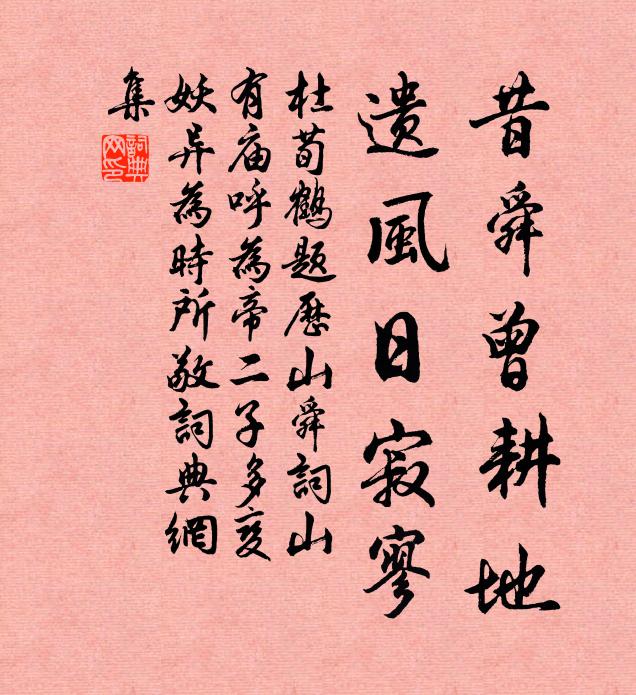 昔舜曾耕地
遗風日寂寥
杜荀鶴題歷山舜詞山
有庙呼為帝二子多变
妖异為時所敬詞典網
集
詞典
网印